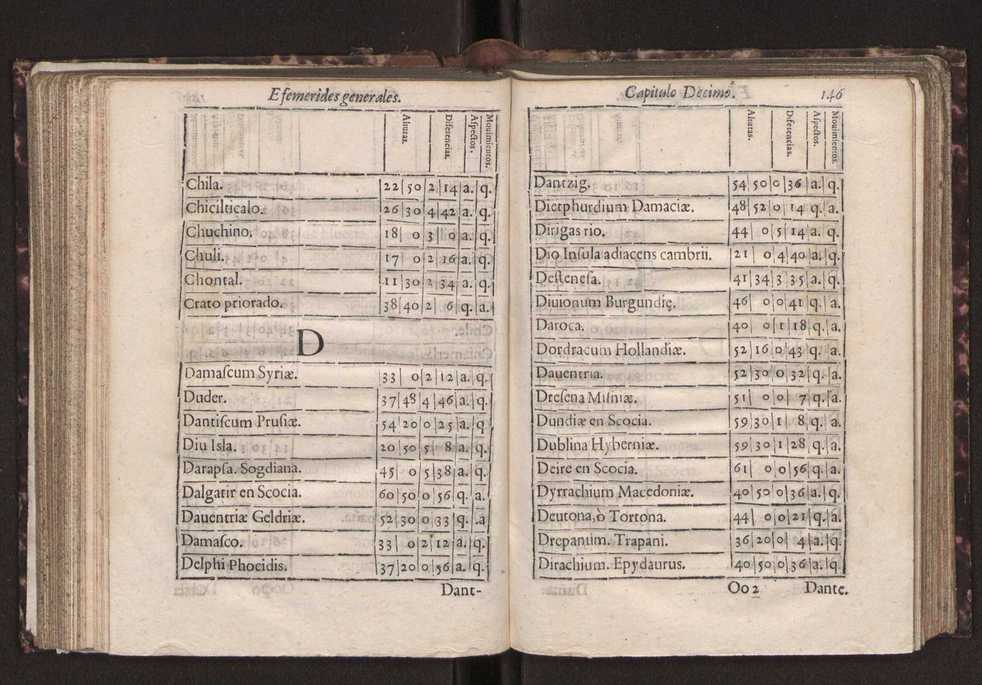 Efemerides generales.
Alturas. Diferencias. Aſpectos. Mouimientos.
Chila. 22 50 2 14 a. q.
Chicilticalo. 26 30 4 42 a. q.
Chuchino. 18 0 3 0 a. q.
Chuli. 17 0 2 16 a. q.
Chontal. 11 30 2 34 a. q.
Crato priorado. 38 40 2 6 q. a.
D
Damaſcum Syriæ. 33 0 2 12 a. q.
Duder. 37 48 4 46 a. q.
Dantiſcum Pruſiæ. 54 20 0 25 a. q
Diu Isla. 20 50 5 8 a. q.
Darapſa. Sogdiana. 45 0 5 38 a. q.
Dalgatir en Scocia. 60 50 0 56 q. a.
Dauentriæ Geldriæ. 52 30 0 33 q. .a
Damaſco. 33 0 2 12 a. q.
Delphi Phocidis. 37 20 0 56 a. q.
Dant-
Capitulo Decimo. 146
Alturas. Diferencias. Aſpectos. Mouimientos.
Dantzig. 54 50 0 36 a. q.
Dietphurdium Damaciæ. 48 52 0 14 q. a.
Dirigas rio. 44 0 5 14 a. q.
Dio Inſula adiacens cambrii. 21 0 4 40 a. q.
Deſteneſa. 41 34 3 35 a. q.
Diuionum Burgundię. 46 0 0 41 q. a.
Daroca. 40 0 1 18 q. a.
Dordracum Hollandiæ. 52 16 0 43 q. a.
Dauentria. 52 30 0 32 q. a.
Dreſena Miſniæ. 51 0 0 7 q. a.
Dundiæ en Scocia. 59 30 1 8 q. a.
Dublina Hyberniæ. 59 30 1 28 q. a.
Deire en Scocia. 61 0 0 56 q. a.
Dyrrachium Macedoniæ. 40 50 0 36 a. q.
Deutona, ò Tortona. 44 0 0 21 q. a.
Drepanum. Trapani. 36 20 0 4 a. q.
Dirachium. Epydaurus. 40 50 0 36 a. q.
Oo 2 Dante.